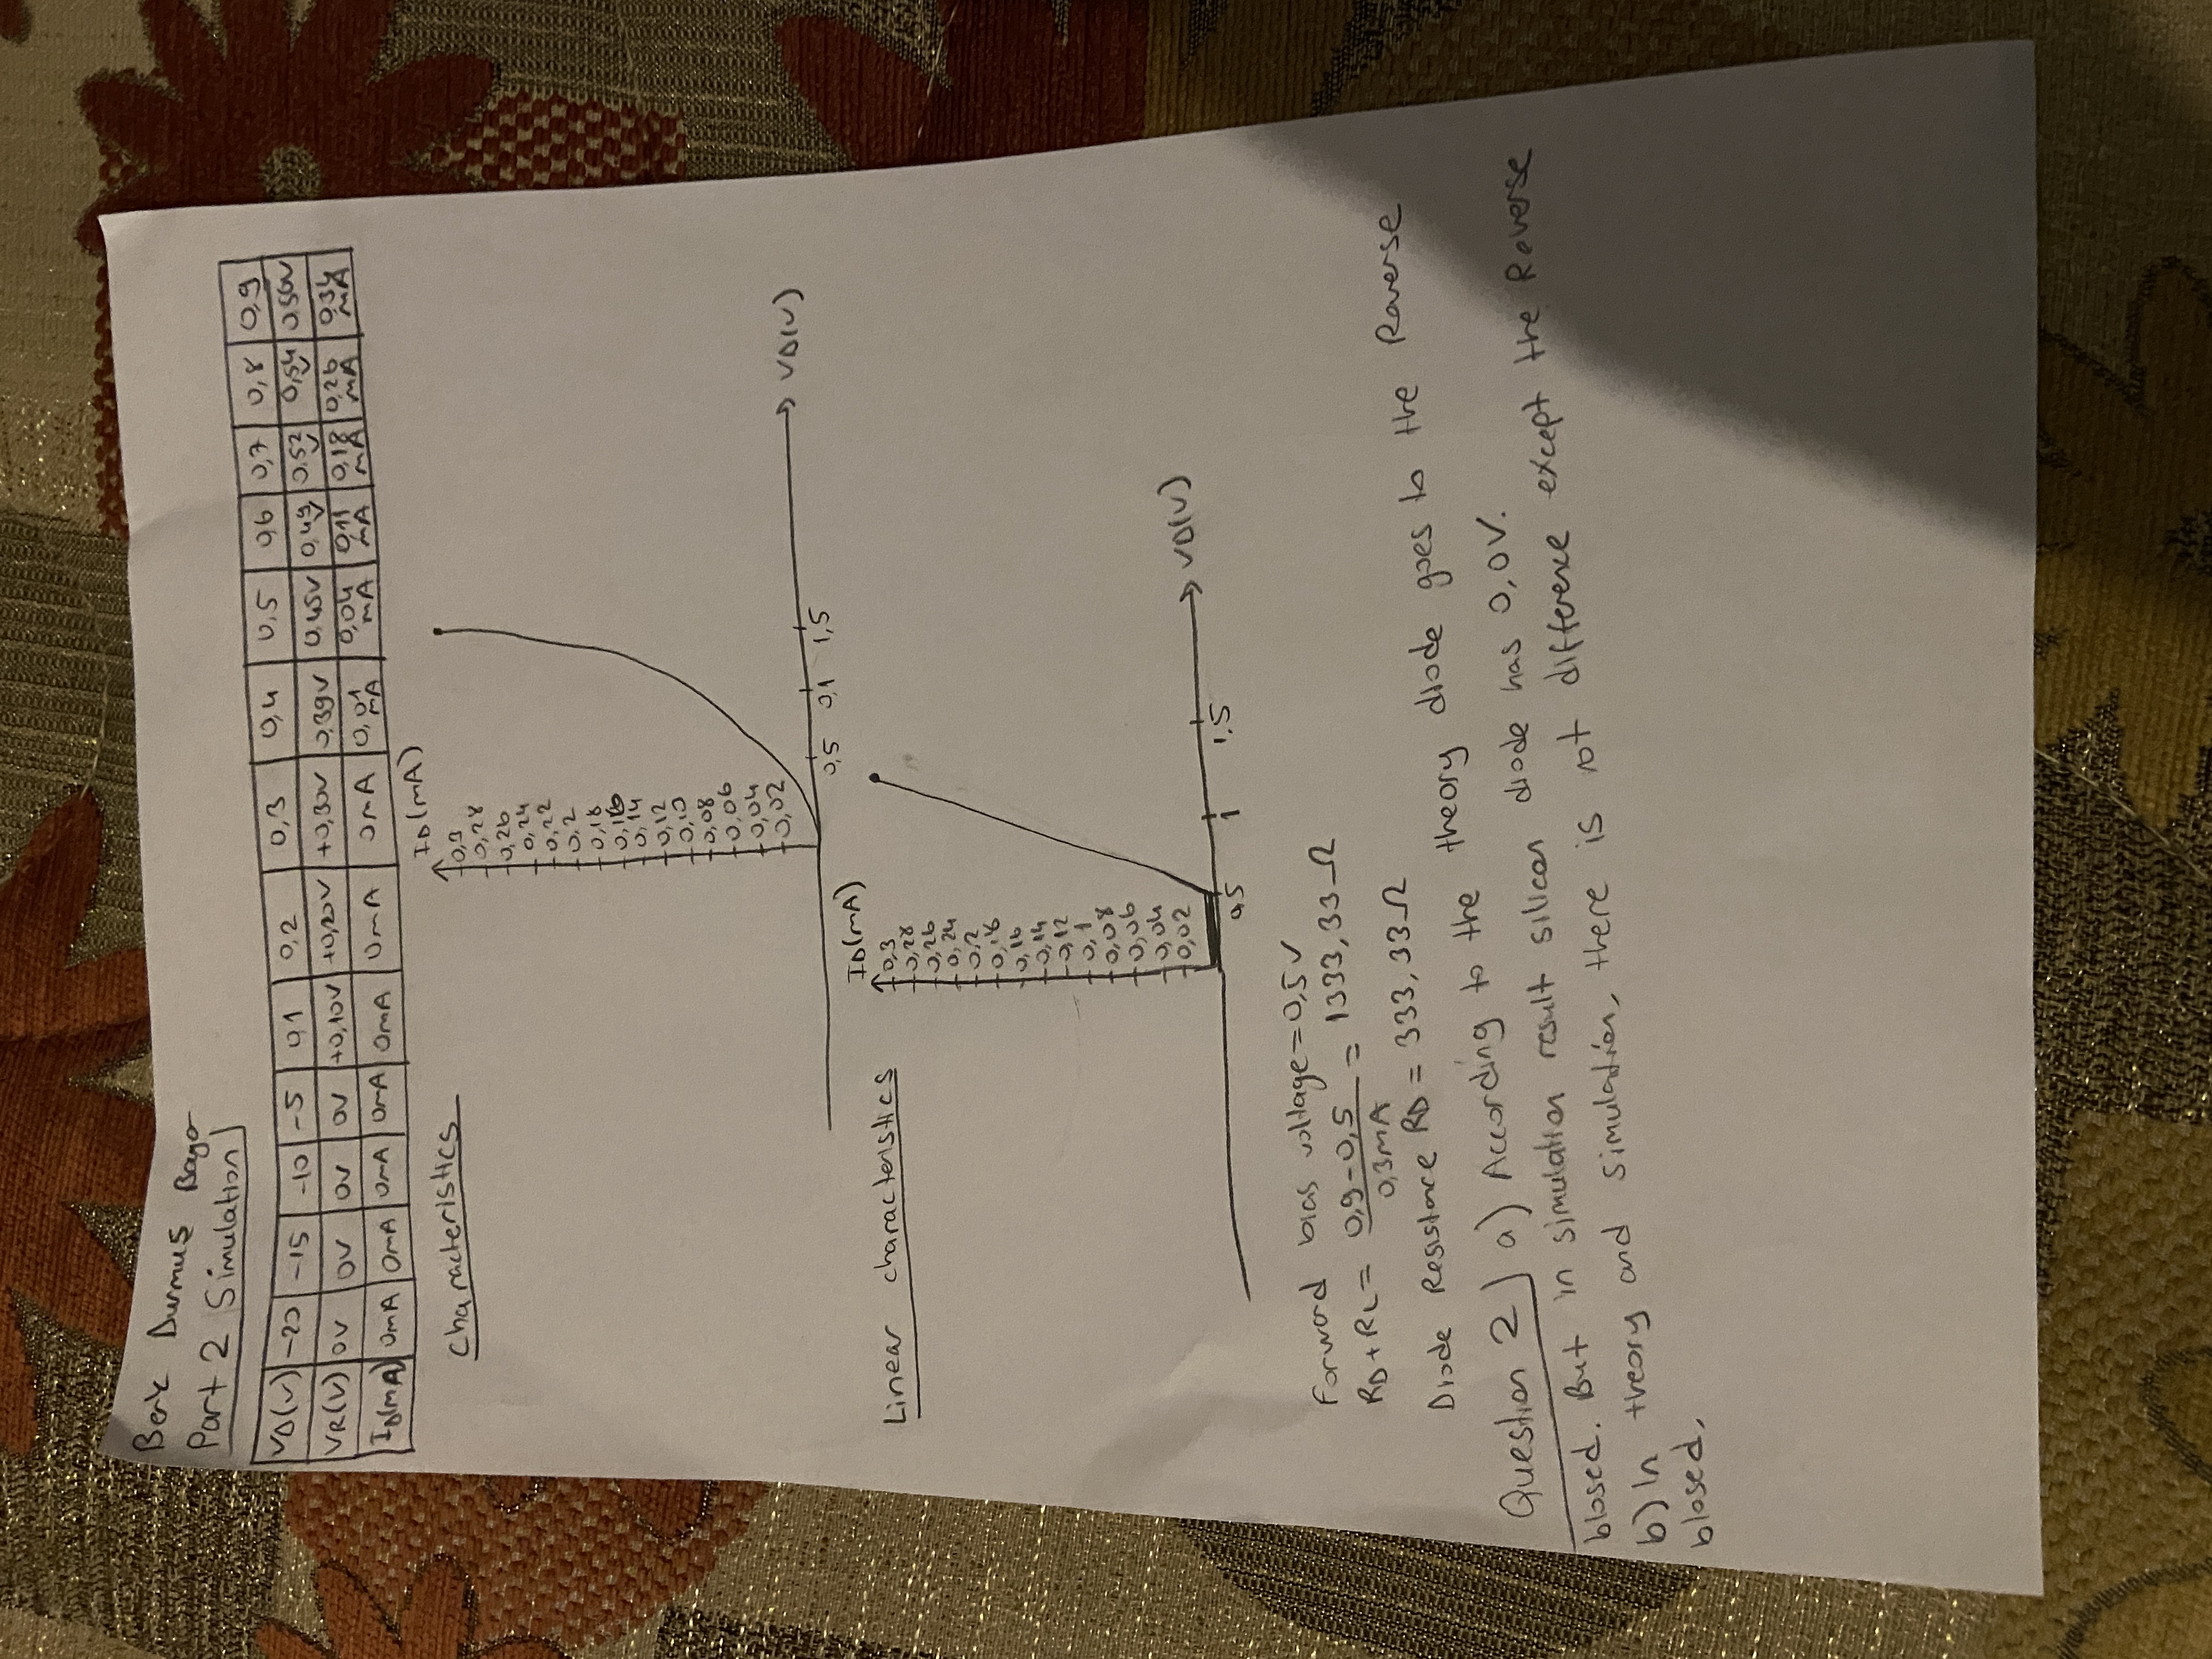 Berk Durmuş Bayo
Part 2 Simulation
VD(V) -20 -15 -10 -5 0,1 0,2 0,3 0,4 0,5 0,6 0,7 0,8 0,9
VR(V) 0V 0V 0V 0V +0,10V +0,20V +0,30V 0,39V 0,45V 0,49V 0,52V 0,54V 0,56V
ID(mA) 0mA 0mA 0mA 0mA 0mA 0mA 0mA 0,01mA 0,04mA 0,11mA 0,18mA 0,26mA 0,34mA
Characteristics
ID(mA)
0,3
0,28
0,26
0,24
0,22
0,2
0,18
0,16
0,14
0,12
0,10
0,08
0,06
0,04
0,02
VD(V)
0,5 0,1 1,5
Linear characteristics
ID(mA)
0,3
0,28
0,26
0,24
0,2
0,18
0,16
0,14
0,12
0,1
0,08
0,06
0,04
0,02
VD(V)
0,5 1 1,5
Forward bias voltage=0,5V
RD+RL= 0,9-0,5 / 0,3mA = 1333,33Ω
Diode Resistance RD = 333,33Ω
Question 2) a) According to the theory diode goes to the Reverse
blosed. But in simulation result silicon diode has 0,0V.
b) In theory and simulation, there is not difference except the Reverse
blosed.